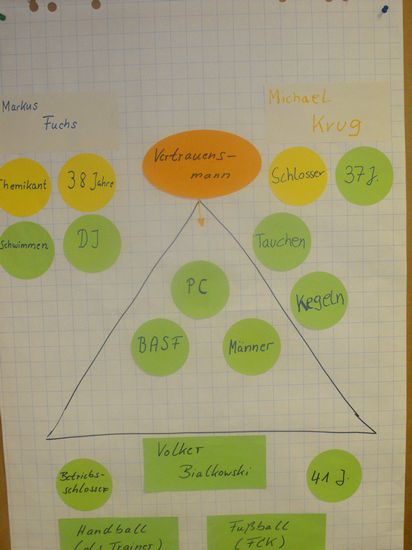 Markus
Fuchs
Michael
Krug
Vertrauens-
mann
Chemikant
38 Jahre
Schlosser
37 J.
Schwimmen
DJ
Tauchen
Kegeln
PC
BASF
Männer
Volker
Bialkowski
Betriebs-
schlosser
41 J.
Handball
(als Trainer)
Fußball
(FCK)